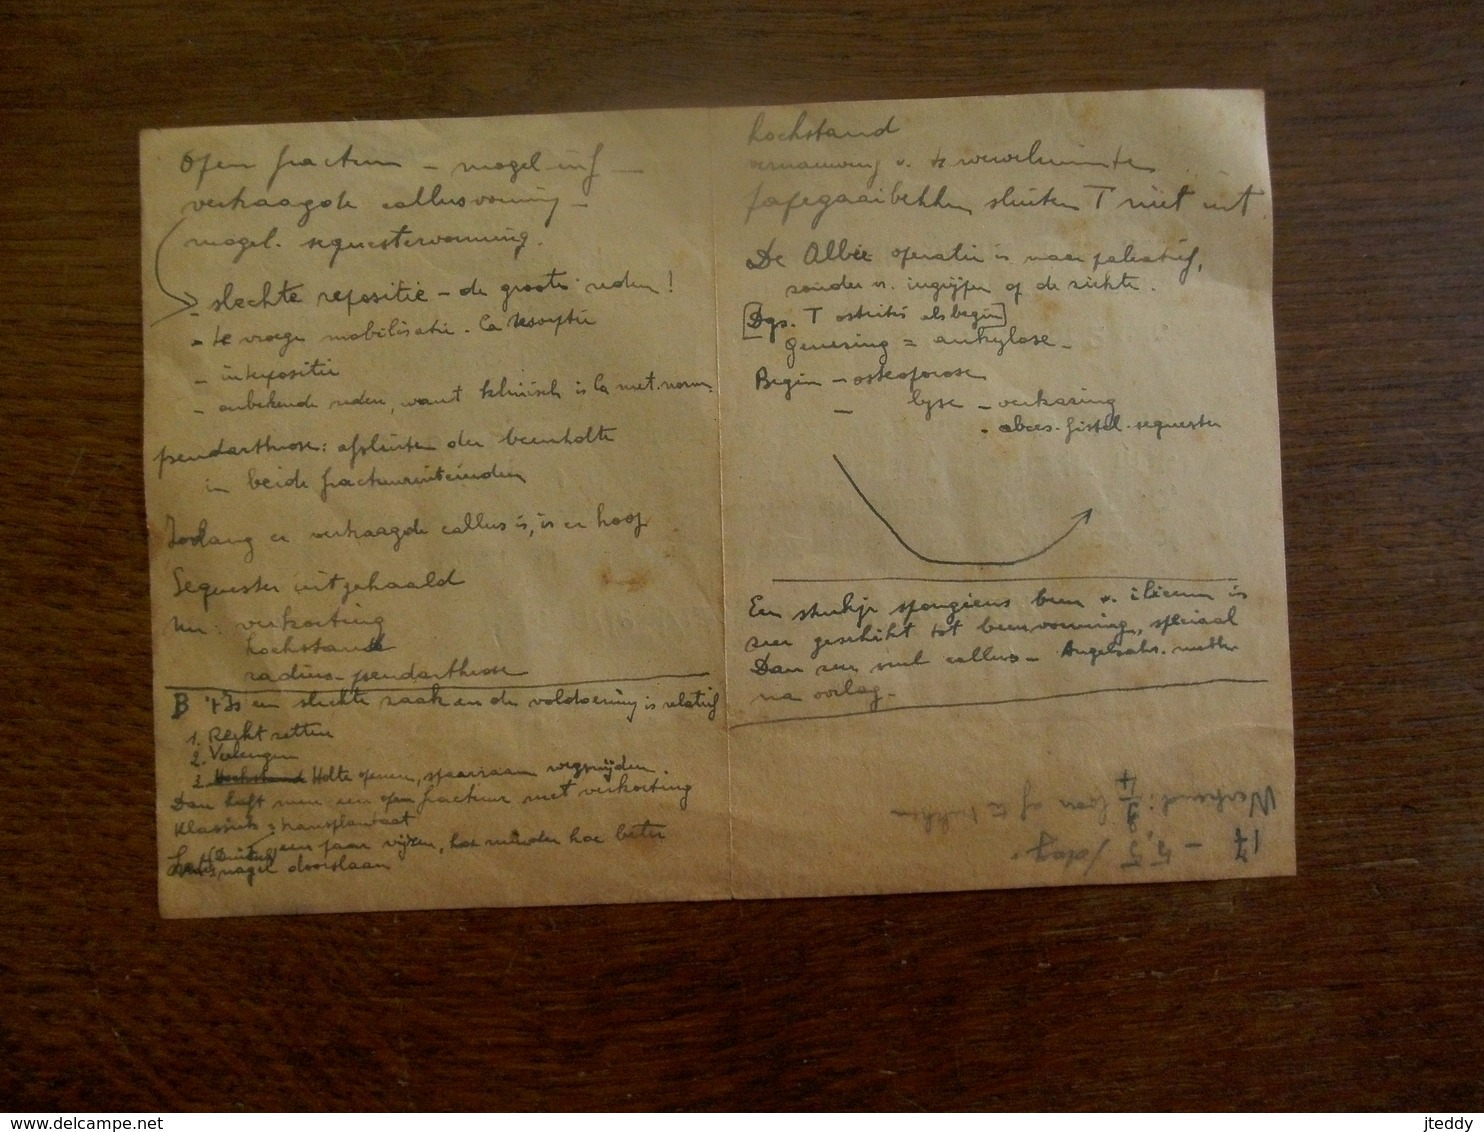 Open fractuur - mogel. inf -
vertraagde callusvorming -
mogel. sequestervorming.
- slechte repositie - de groote reden!
- te vroege mobilisatie. Ca resorptie
- interpositie
- onbekende reden, want klinisch is Ca met. norm.
pseudarthrose: afsluiten der beenholte
in beide fractuuruiteinden
Zoolang er vertraagde callus is, is er hoop
Sequester uitgehaald
nu: verkorting
hochstand
radius-pseudarthrose
B 't Is een slechte zaak en de voldoening is relatief
1. Recht zetten
2. Verlengen
3. Holte openen, spaarzaam wegsnijden.
Dan heeft men een open fractuur met verkorting
Klassiek = transplantaat
een paar vijzen, hoe minder hoe beter
nagel doorslaan
hochstand
vernauwing v. te wervelruimte
papegaaibekken sluiten T niet uit
De Albee operatie is maar paleatief,
zonder v. ingrijpen op de ziekte.
[Dgs. T osteitis als begin]
Genezing = ankylose -
Begin - osteoporose
- lyse - verkazing
- abces. fistel. sequester
Een stukje spongieus been v. ilieum is
zeer geschikt tot beenvorming, speciaal
Dan zeer veel callus - Angelsaks. methode
na oorlog -
17 - 5,5 /dag.